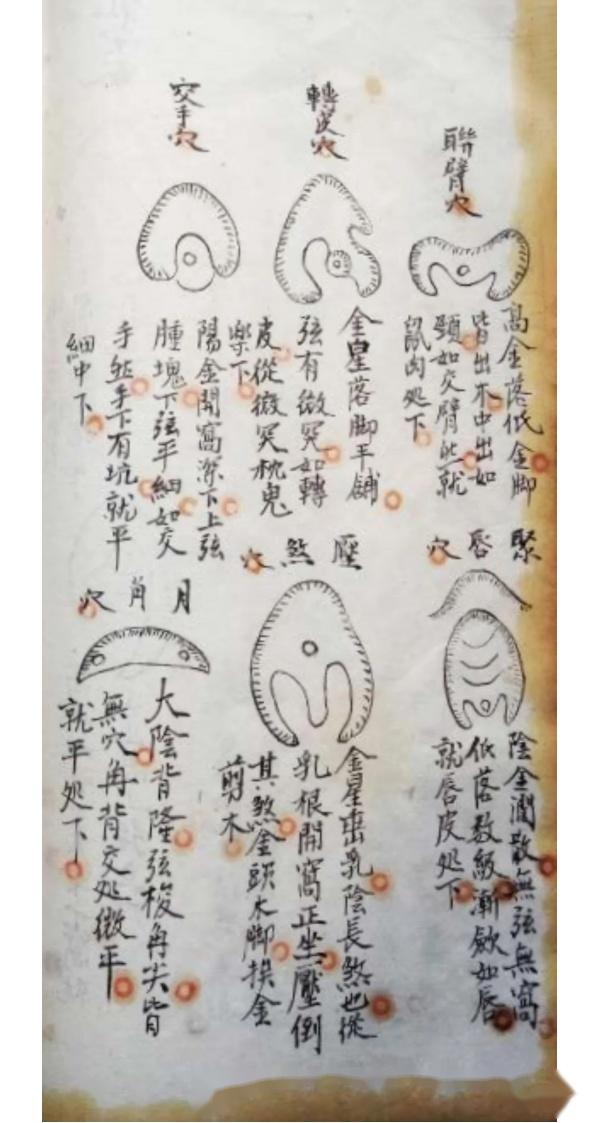 聯臂穴
高金落低金脚
皆出木中出如
頸如交臂此就
鼠肉処下
轉皮穴
金星落脚平鋪
弦有微突如轉
皮從微突枕鬼
楽下
交手穴
陽金開窩深下上弦
腫塊下弦平細如交
手然手下有坑就平
細中下
聚唇穴
陰金濶散無弦無窩
低落数級漸歛如唇
就唇皮処下
壓煞穴
金星出乳陰長煞也從
乳根開窩正坐壓倒
其煞金頭木脚挨金
剪木
月角穴
大陰背隆弦梭角尖皆
無穴角背交処微平
就平処下